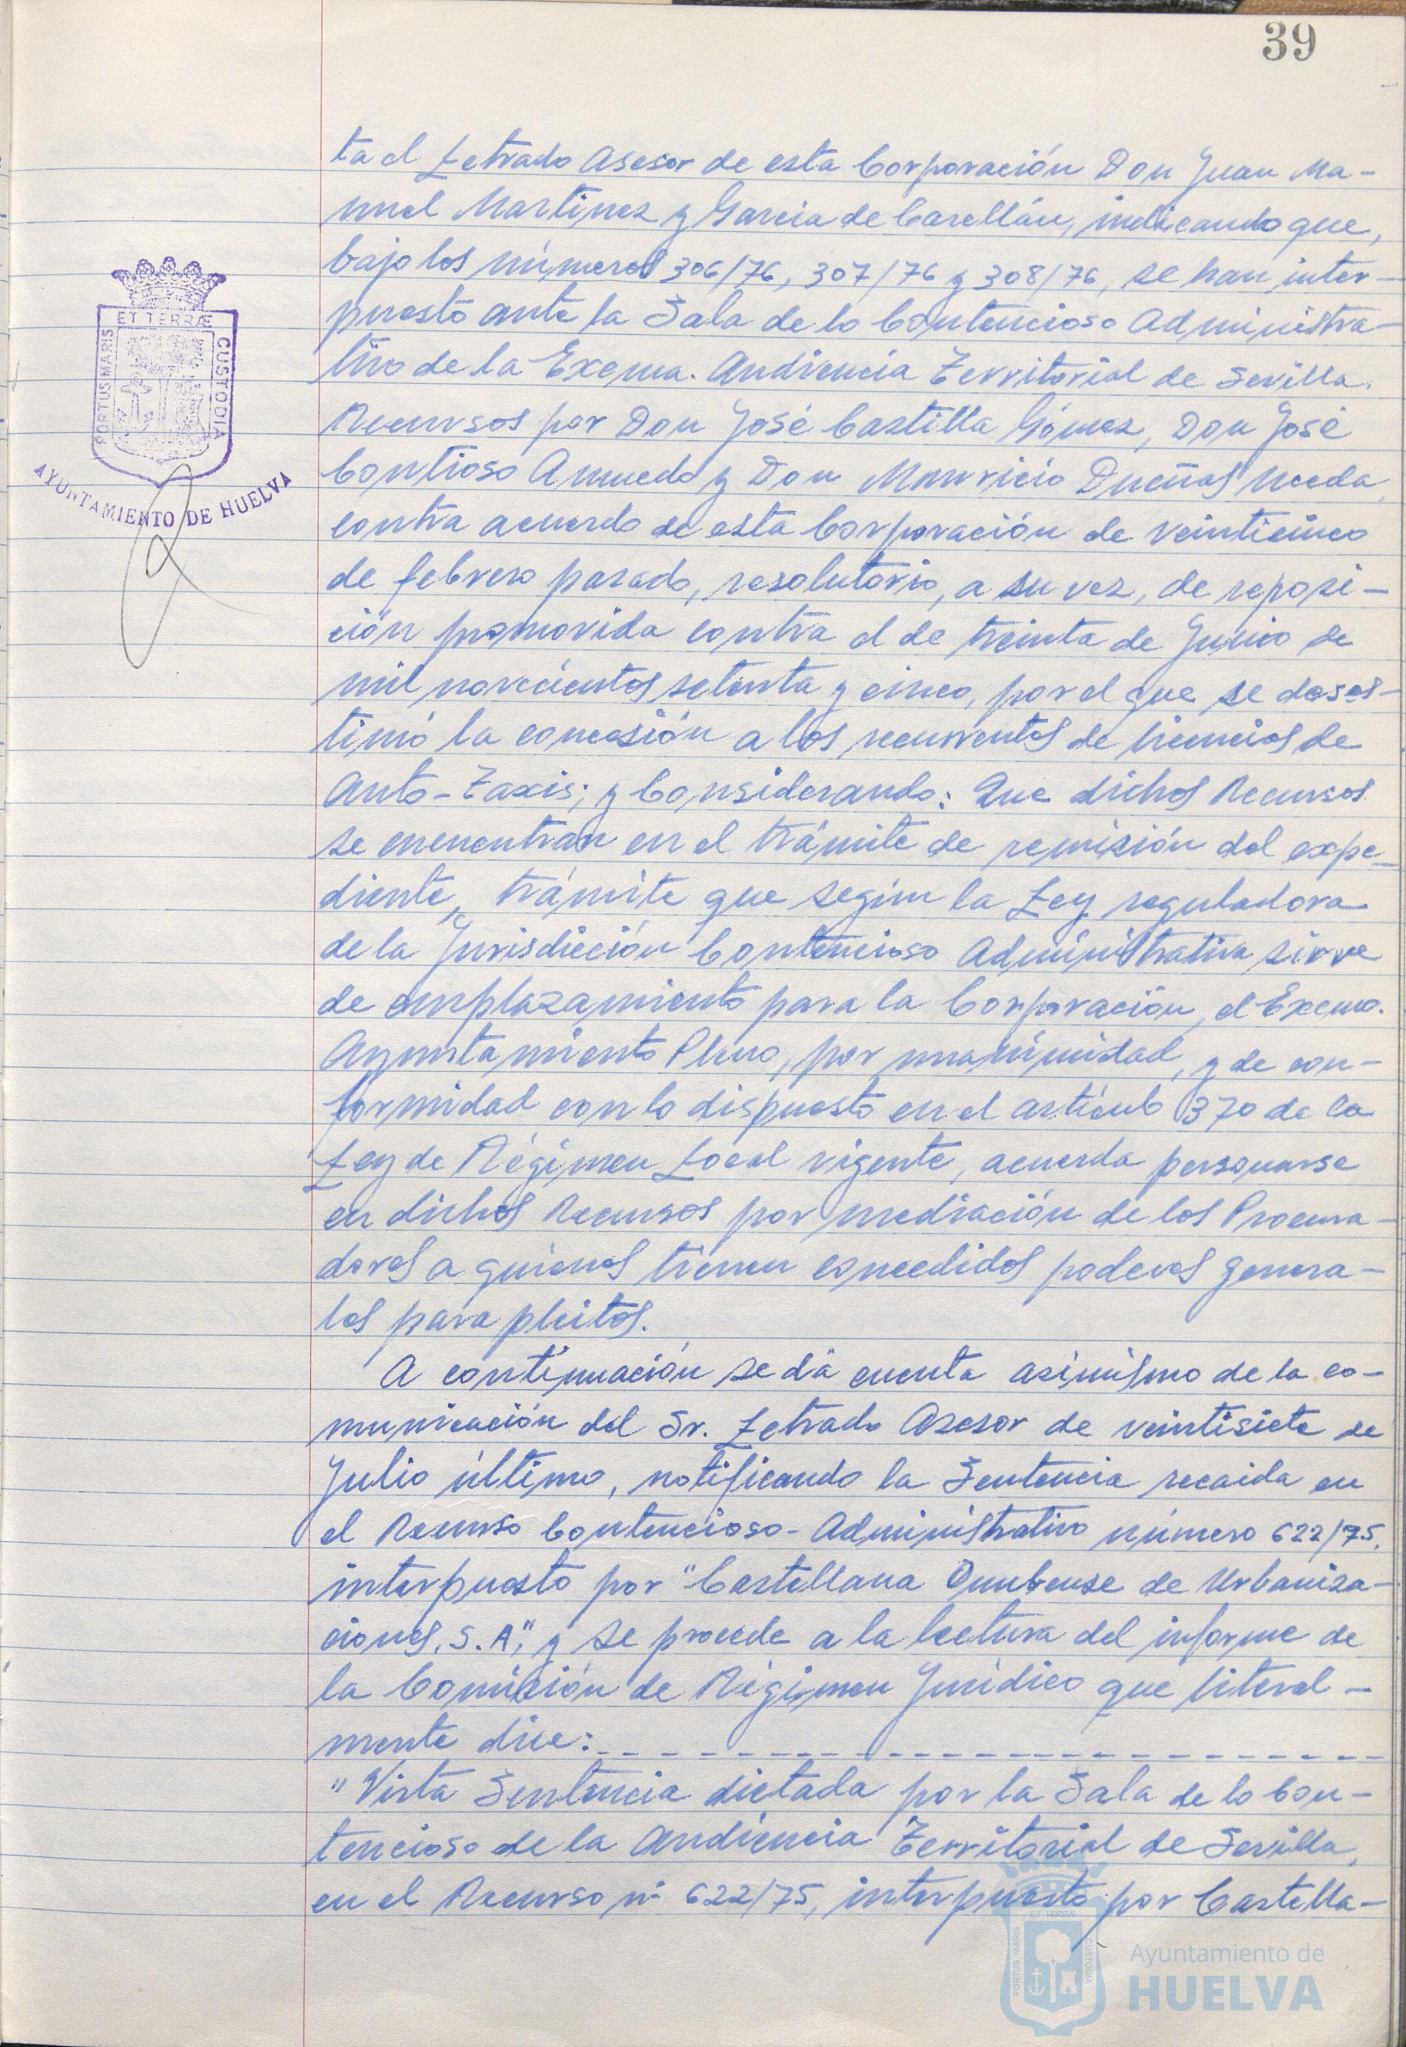 39
ta el Letrado Asesor de esta Corporación Don Juan Ma-
nuel Martinez y Garcia de Casellán, indicando que,
bajo los números 306/76, 307/76 y 308/76, se han inter-
puesto ante la Sala de lo Contencioso Administra-
tivo de la Excma. Audiencia Territorial de Sevilla.
Recursos por Don José Castilla Gómez, Don José
Contioso Amuedo y Don Mauricio Dueñas Uceda
contra acuerdo de esta Corporación de veinticinco
de febrero pasado, resolutorio, a su vez, de reposi-
ción promovida contra el de treinta de Junio de
mil novecientos setenta y cinco, por el que se deses-
timó la concesión a los recurrentes de licencias de
Auto-Taxis; y Considerando: Que dichos Recursos
se encuentran en el trámite de remisión del expe-
diente, trámite que según la Ley reguladora
de la Jurisdicción Contencioso Administrativa sirve
de emplazamiento para la Corporación, el Excmo.
Ayuntamiento Pleno, por unanimidad, y de con-
formidad con lo dispuesto en el artículo 370 de la
Ley de Régimen Local vigente, acuerda personarse
en dichos Recursos por mediación de los Procura-
dores a quienes tienen concedidos poderes genera-
les para pleitos.
A continuación se dá cuenta asimismo de la co-
municación del Sr. Letrado Asesor de veintisiete de
Julio último, notificando la Sentencia recaida en
el Recurso Contencioso-Administrativo número 622/75,
interpuesto por "Castellana Onubense de Urbaniza-
ciones, S.A", y se procede a la lectura del informe de
la Comisión de Régimen Jurídico que literal-
mente dice:
"Vista Sentencia dictada por la Sala de lo Con-
tencioso de la Audiencia Territorial de Sevilla,
en el Recurso nº 622/75, interpuesto por Castella-
PORTUS MARIS
ET TERRÆ
CUSTODIA
AYUNTAMIENTO DE HUELVA
PORTUS MARIS
ET TERRÆ
CUSTODIA
Ayuntamiento de
HUELVA